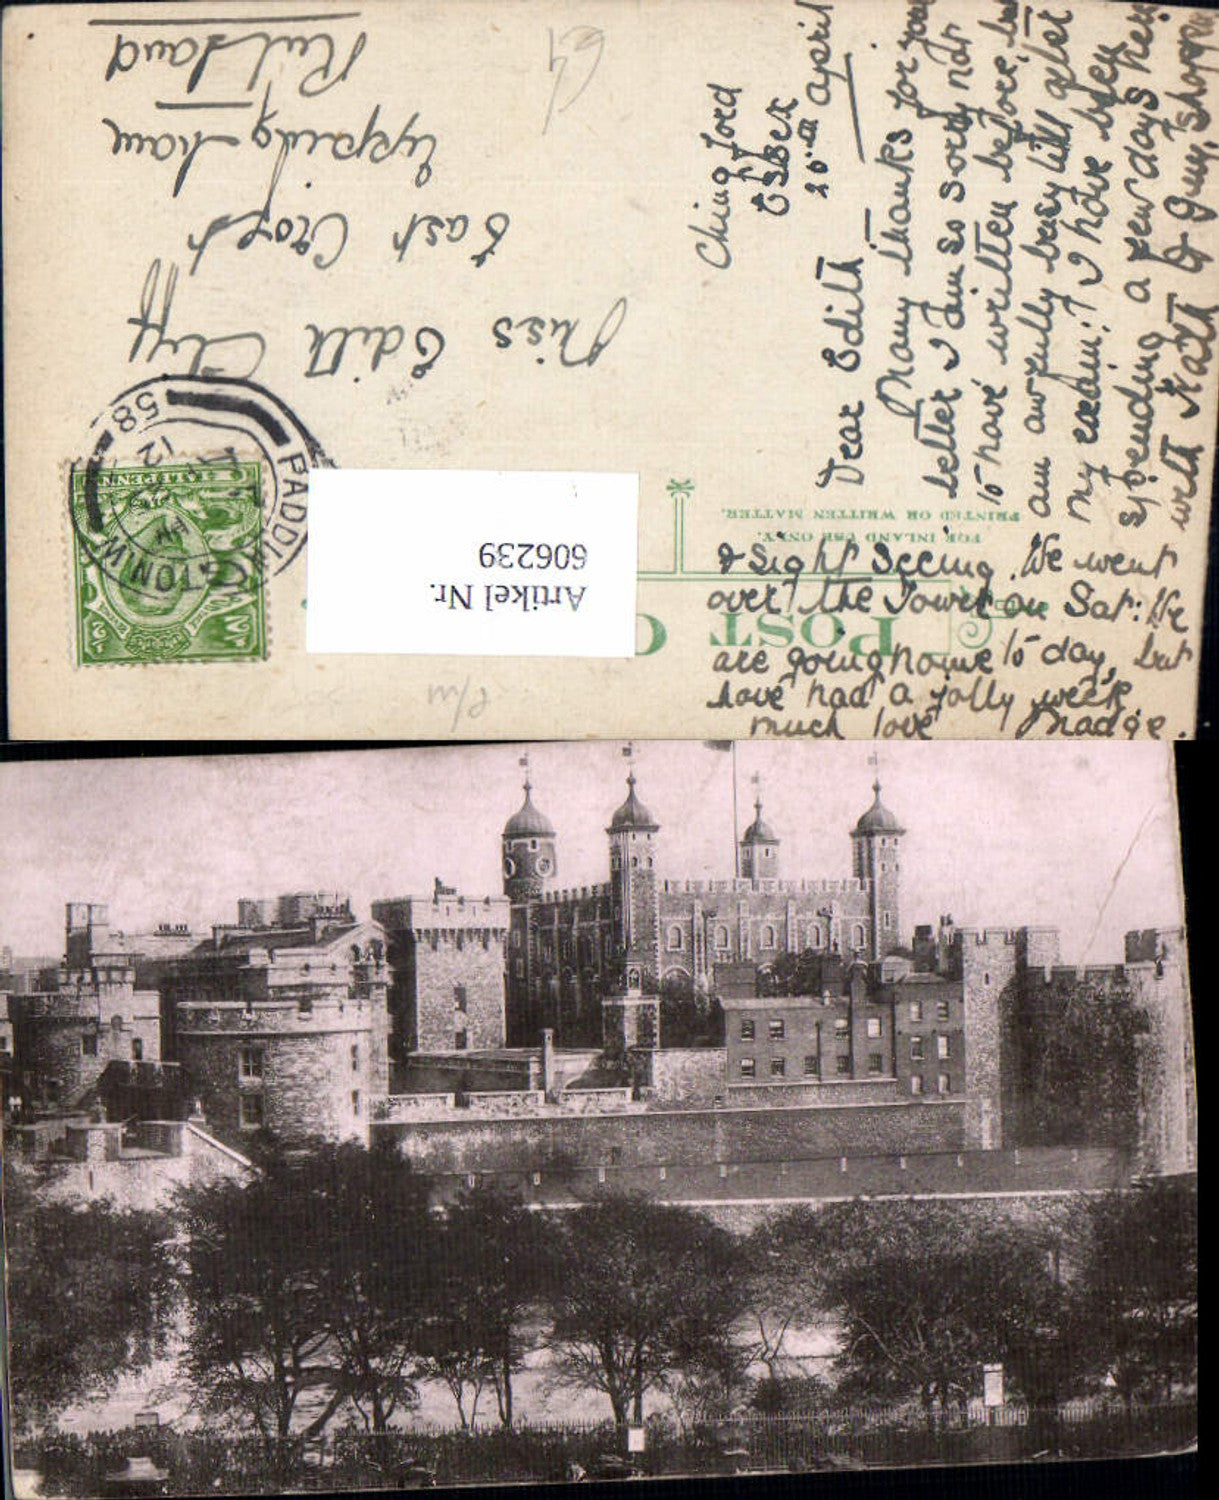 Ching ford
Essex
20th April
Dear Edith
Many thanks for your
letter I am so sorry not
to have written before, but
am awfully busy till after
my exam: I have been
spending a few days here
with Kath & Jimy, shopping
& Sight Seeing. We went
over the Tower on Sat: We
are going home to day, but
have had a jolly week
much love Madge.
Miss Edith Cliff
East Croft
Uppingham
Rutland
POST C
FOR INLAND USE ONLY.
PRINTED OR WRITTEN MATTER.
Artikel Nr.
606239
PADDINGTON W
58
12
HALFPENNY